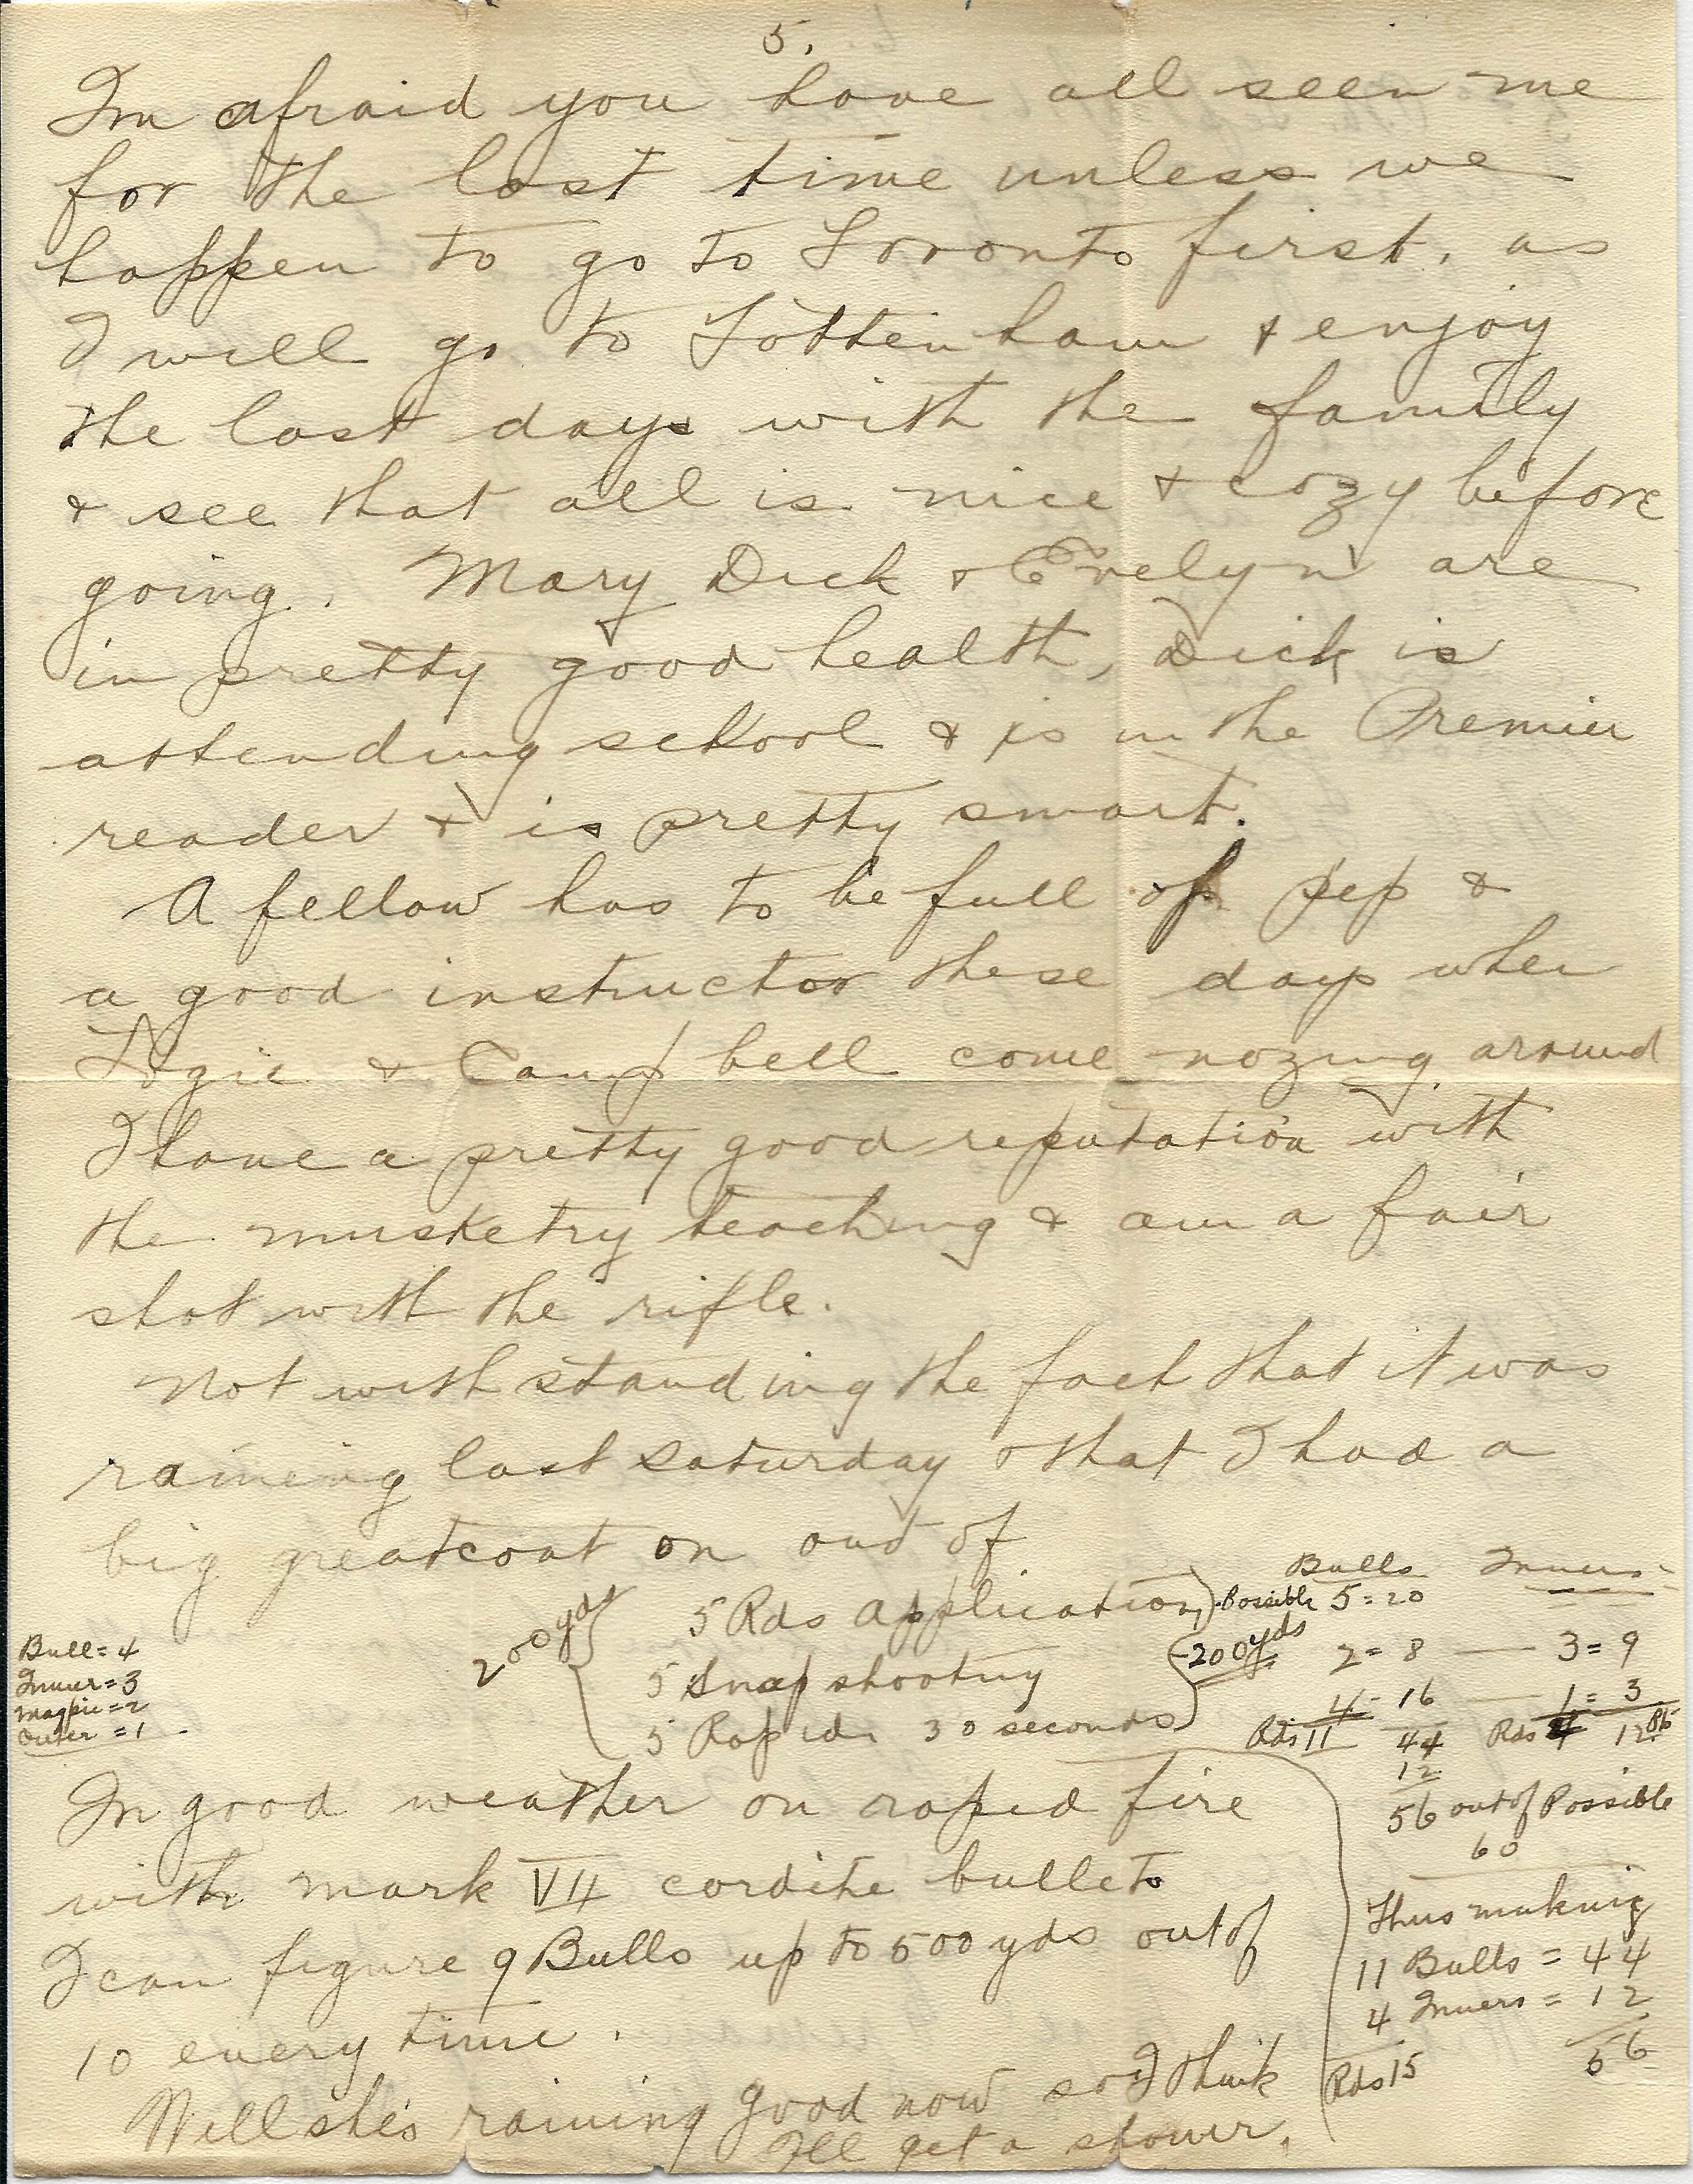 5.
Im afraid you have all seen me
for the last time unless we
happen to go to Toronto first, as
I will go to Tottenham & enjoy
the last days with the family
& see that all is nice & cozy before
going. Mary Dick & Evelyn are
in pretty good health, Dick is
attending school & is in the Premier
reader & is pretty smart.
A fellow has to be full of pep &
a good instructor these days when
Logie & Campbell come nozing around
I have a pretty good reputation with
the musketry teaching & am a fair
shot with the rifle.
Not withstanding the fact that it was
raining last Saturday & that I had a
big greatcoat on out of
Bulls Inners
200 yds 5 Rds Application Possible 5 = 20
5 Snap shooting 200 yds 2 = 8 — 3 = 9
5 Rapid 30 seconds 4 - 16 — 1 = 3
Rds 11 44 Rds 4 12 Pts
12
56 out of Possible
60
Bull = 4
Inner = 3
Magpie = 2
Outer = 1
In good weather on rapid fire
with mark VII cordite bullets
I can figure 9 Bulls up to 500 yds out of
10 every time.
Thus making
11 Bulls = 44
4 Inners = 12
Rds 15 56
Well she's raining good now so I think
I'll get a shower.